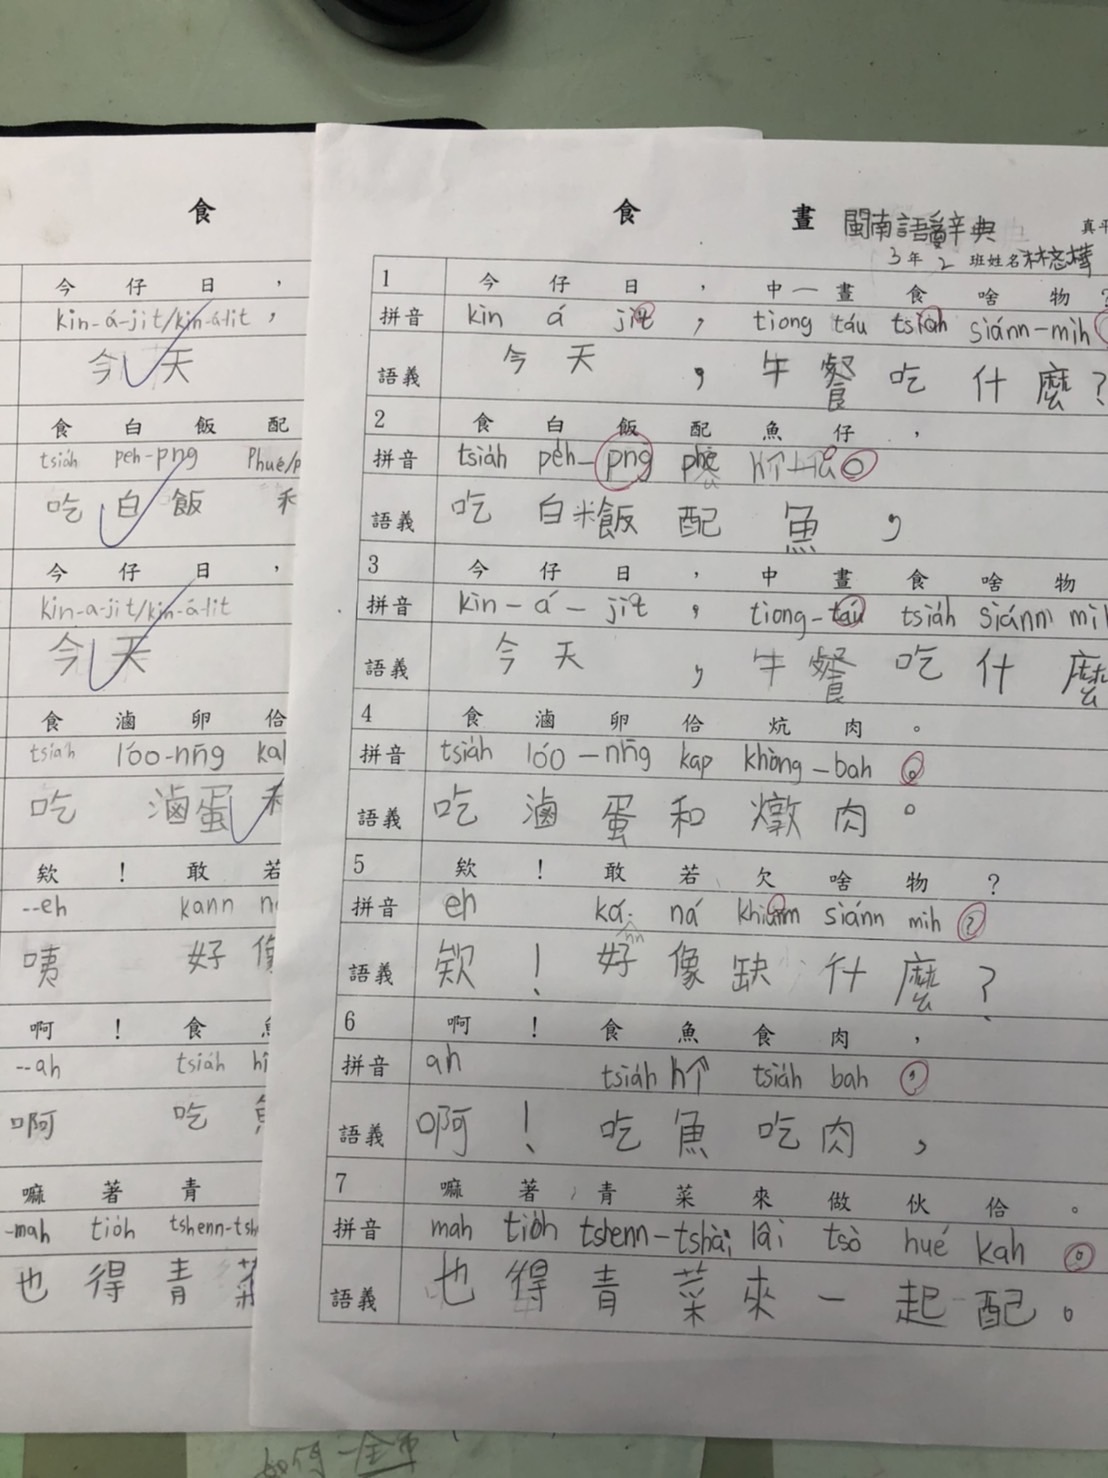 食
今 仔 日 ，
kin-á-jit/kin-á-lit ，
今天
食 白 飯 配
tsiáh peh-png Phué/p
吃 白 飯
今 仔 日 ，
kin-a-jit/kin-á-lit
今天
食 滷 卵 佮
tsiah lóo-nñg ka
吃 滷蛋
欸 ！ 敢 若
--eh kann n
咦 好 像
啊 ！ 食
--ah tsiáh hî
啊 吃
嘛 著 青
-mah tióh tshenn-tsh
也 得 青 菜
食 晝 閩南語辭典 真平
3 年 2 班姓名
1 今 仔 日 ， 中 一 晝 食 啥 物 ？
拼音 kin á jit ， tiong táu tsiah siánn-mih
語義 今 天 ， 午 餐 吃 什 麼？
2 食 白 飯 配 魚 仔 ，
拼音 tsiáh peh-png
語義 吃 白米飯 配 魚 ，
3 今 仔 日 ， 中 晝 食 啥 物
拼音 kin-á-jit ， tiong-táu tsiáh siánn mih
語義 今 天 ， 午 餐 吃 什 麼
4 食 滷 卵 佮 炕 肉 。
拼音 tsiáh lóo-nñg kap khòng-bah 。
語義 吃 滷 蛋 和 燉 肉 。
5 欸 ！ 敢 若 欠 啥 物 ？
拼音 eh ká nn ná khiamm siánn mih ？
語義 欸 ！ 好 像 缺 什 麼 ？
6 啊 ！ 食 魚 食 肉 ，
拼音 ah tsiáh hî tsiáh bah ，
語義 啊 ！ 吃 魚 吃 肉 ，
7 嘛 著 青 菜 來 做 伙 佮 。
拼音 mah tióh tshenn-tshài lâi tsò hué kah 。
語義 也 得 青 菜 來 一 起 配 。
如何一全車